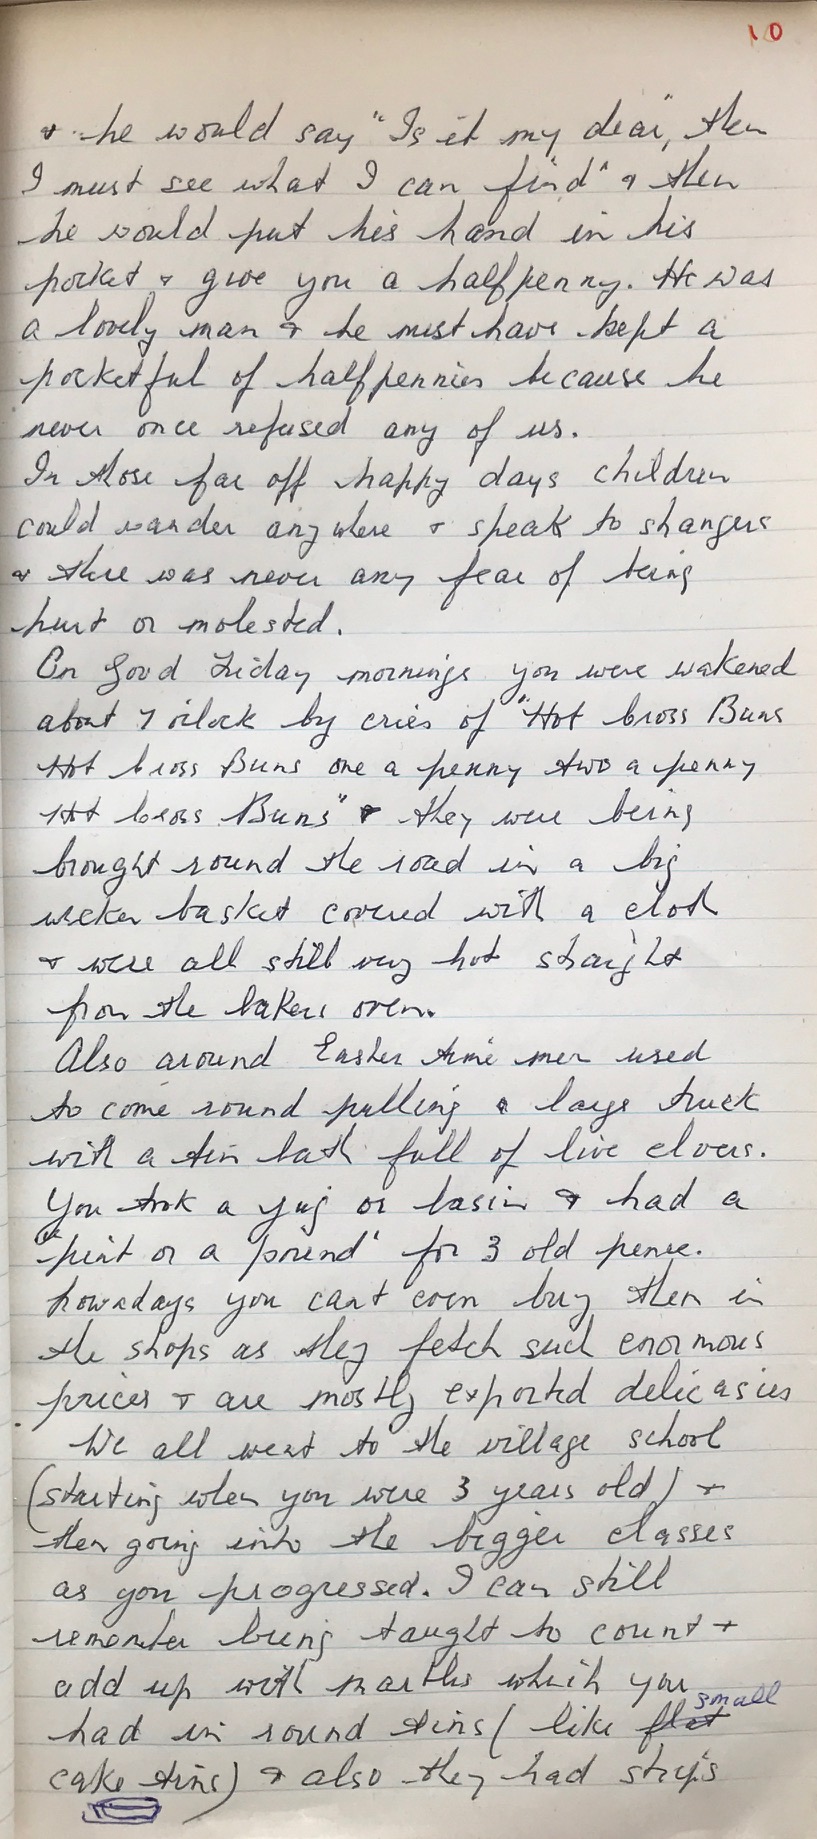 10
& he would say "Is it my dear, then
I must see what I can find" & then
he would put his hand in his
pocket & give you a halfpenny. He was
a lovely man & he must have kept a
pocketful of halfpennies because he
never once refused any of us.
In those far off happy days children
could wander anywhere & speak to strangers
& there was never any fear of being
hurt or molested.
On Good Friday mornings you were wakened
about 7 oclock by cries of "Hot Cross Buns
Hot Cross Buns one a penny two a penny
Hot Cross Buns" & they were being
brought round the road in a big
wicker basket covered with a cloth
& were all still very hot straight
from the bakers oven.
Also around Easter time men used
to come round pulling a large truck
with a tin bath full of live elvers.
You took a jug or basin & had a
"pint or a pound" for 3 old pence.
Nowadays you cant even buy them in
the shops as they fetch such enormous
prices & are mostly exported delicasies
We all went to the village school
(starting when you were 3 years old) &
then going into the bigger classes
as you progressed. I can still
remember being taught to count &
add up with marbles which you
had in round tins (like flat small
cake tins) & also they had strips